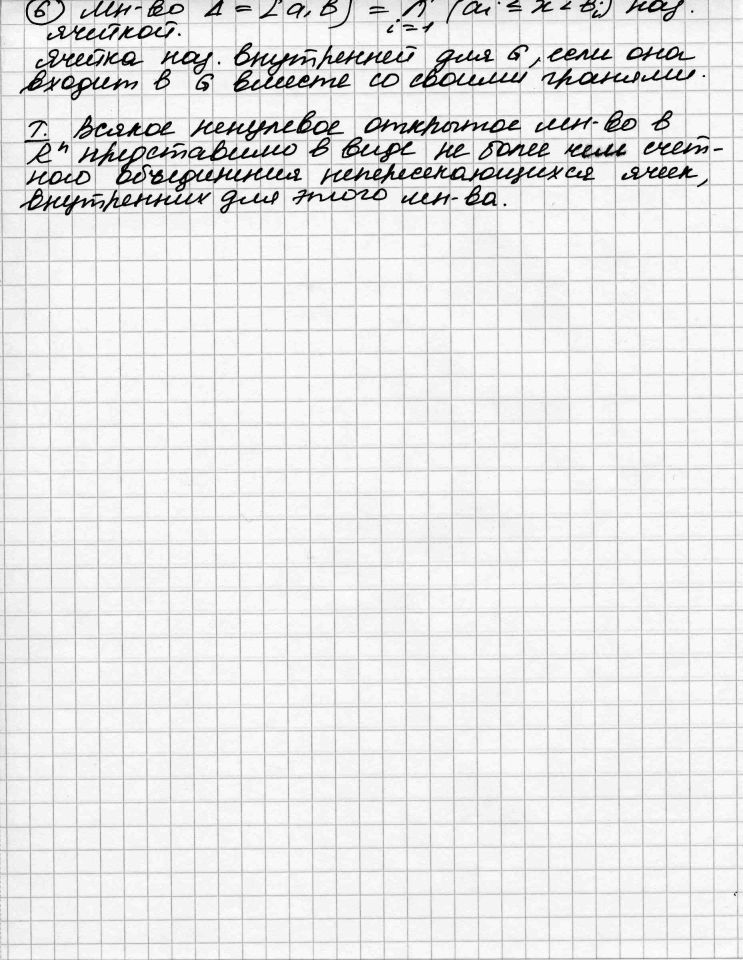 ⑥ Мн-во Δ = [a, b) = ∏ (ai ≤ x < bi) наз.
i=1
ячейкой.
Ячейка наз. внутренней для G, если она
входит в G вместе со своими гранями.
Т. Всякое ненулевое открытое мн-во в
Rⁿ представимо в виде не более чем счет-
ного объединения непересекающихся ячеек,
внутренних для этого мн-ва.